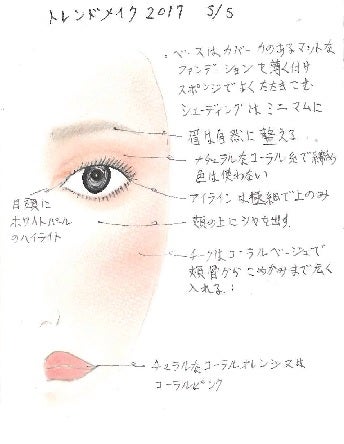 トレンドメイク 2017 S/S
・ベースはカバー力のあるマットな
ファンデーションを薄く付け
スポンジでよくたたきこむ
シェーディングはミニマムに
眉は自然に整える
ナチュラルなコーラル系で
色は使わない
アイラインは極細で上のみ
目頭に
ホワイトパール
のハイライト
頬の上にツヤを出す
チークはコーラルベージュで
頬骨からこめかみまで広く
入れる
ナチュラルなコーラルオレンジ又は
コーラルピンク